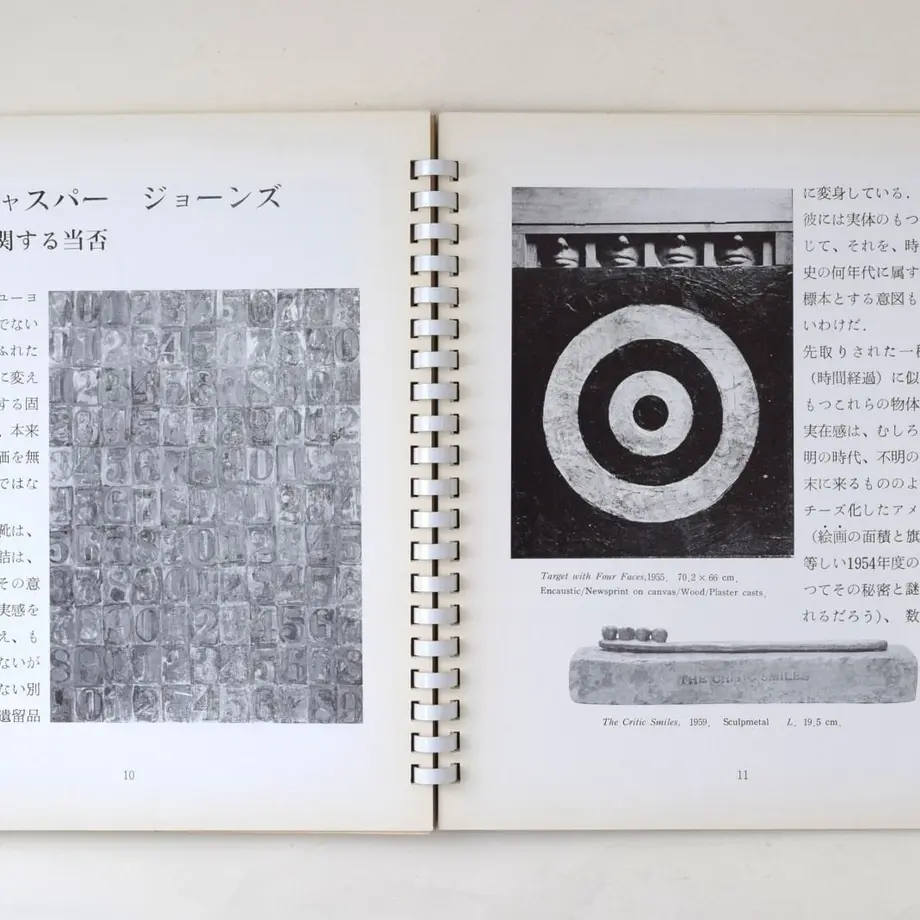 ャスパー　ジョーンズ
関する当否
ューヨ
でない
ふれた
に変え
する固
、本来
価を無
ではな
靴は、
詰は、
その意
実感を
え、も
ないが
ない別
遺留品
10
Target with Four Faces, 1955, 70.2 × 66 cm.
Encaustic/Newsprint on canvas/Wood/Plaster casts.
THE CRITIC SMILES
The Critic Smiles, 1959, Sculpmetal L. 19.5 cm.
に変身している．
彼には実体のもつ
じて、それを、時
史の何年代に属す
標本とする意図も
いわけだ．
先取りされた一種
（時間経過）に似
もつこれらの物体
実在感は、むしろ
明の時代、不明の
末に来るもののよ
チーズ化したアメ
（絵画の面積と旗
等しい1954年度の
つてその秘密と謎
れるだろう）、数
11